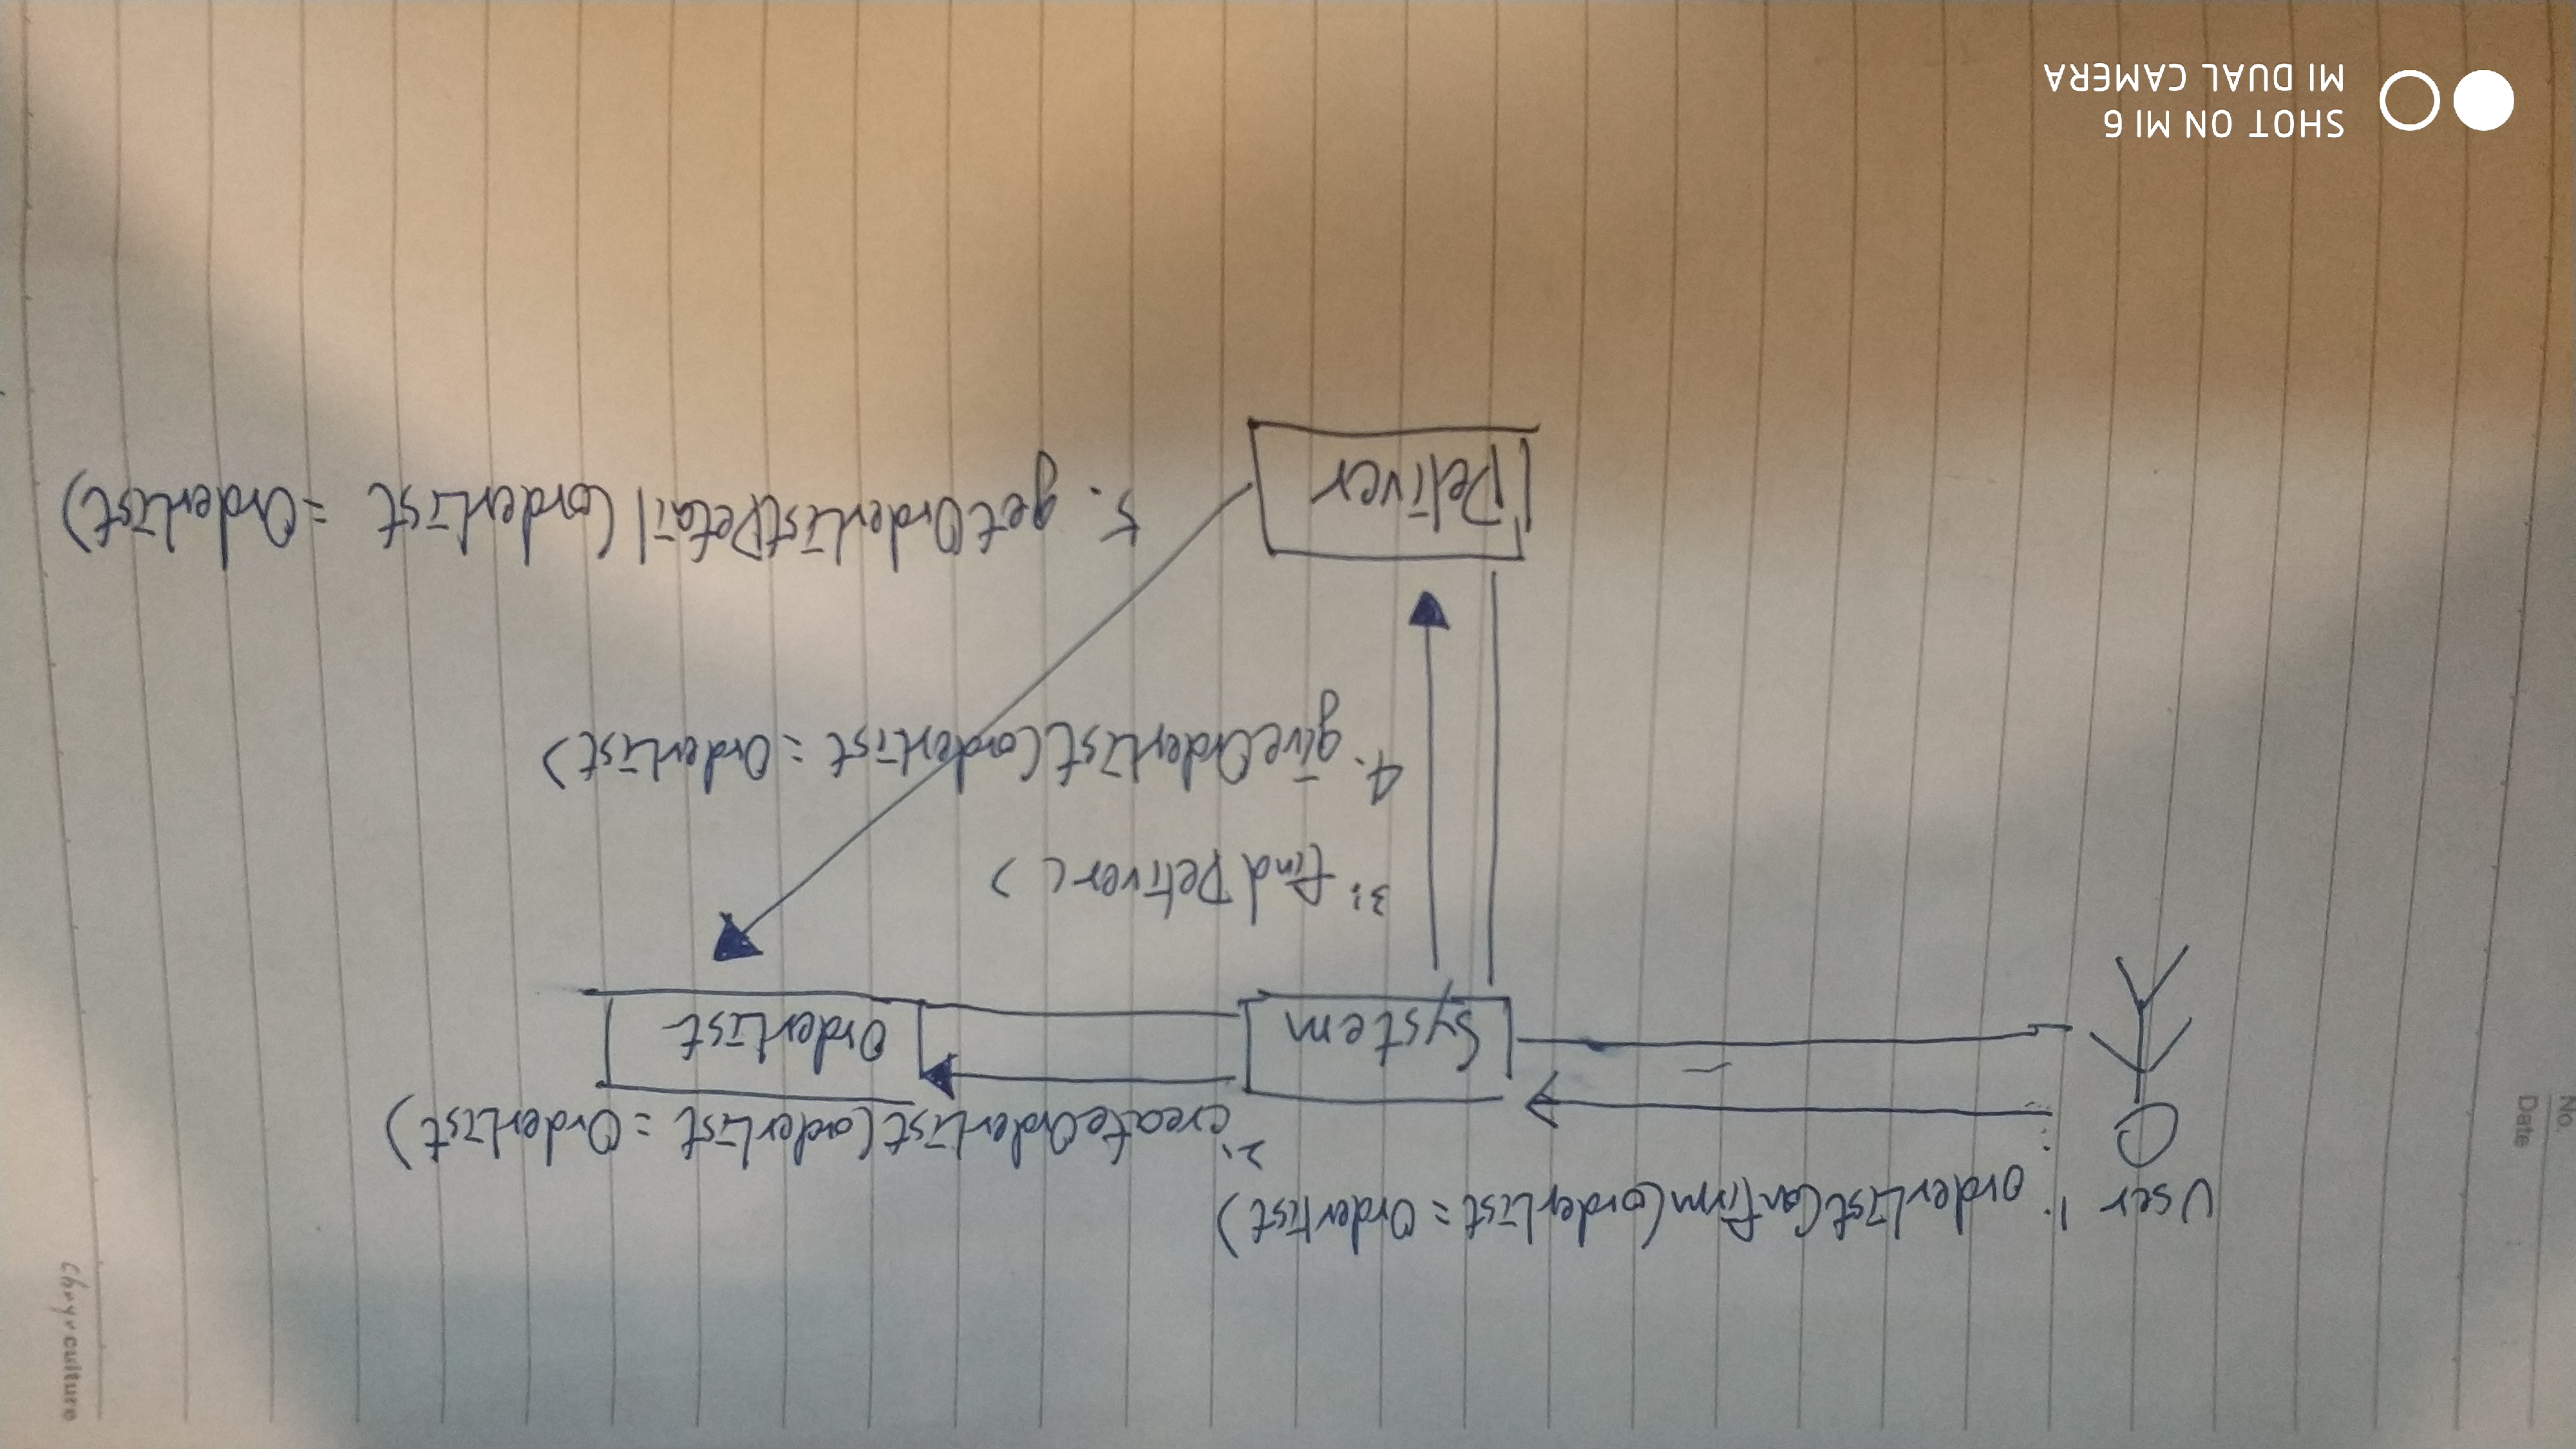 User
1. orderListConfirm(orderList = OrderList)
2. createOrderList(orderList = OrderList)
System
OrderList
3: findDeliver()
4. giveOrderList(orderList = OrderList)
Deliver
5. getOrderListDetail(orderList = OrderList)
No.
Date
SHOT ON MI 6
MI DUAL CAMERA